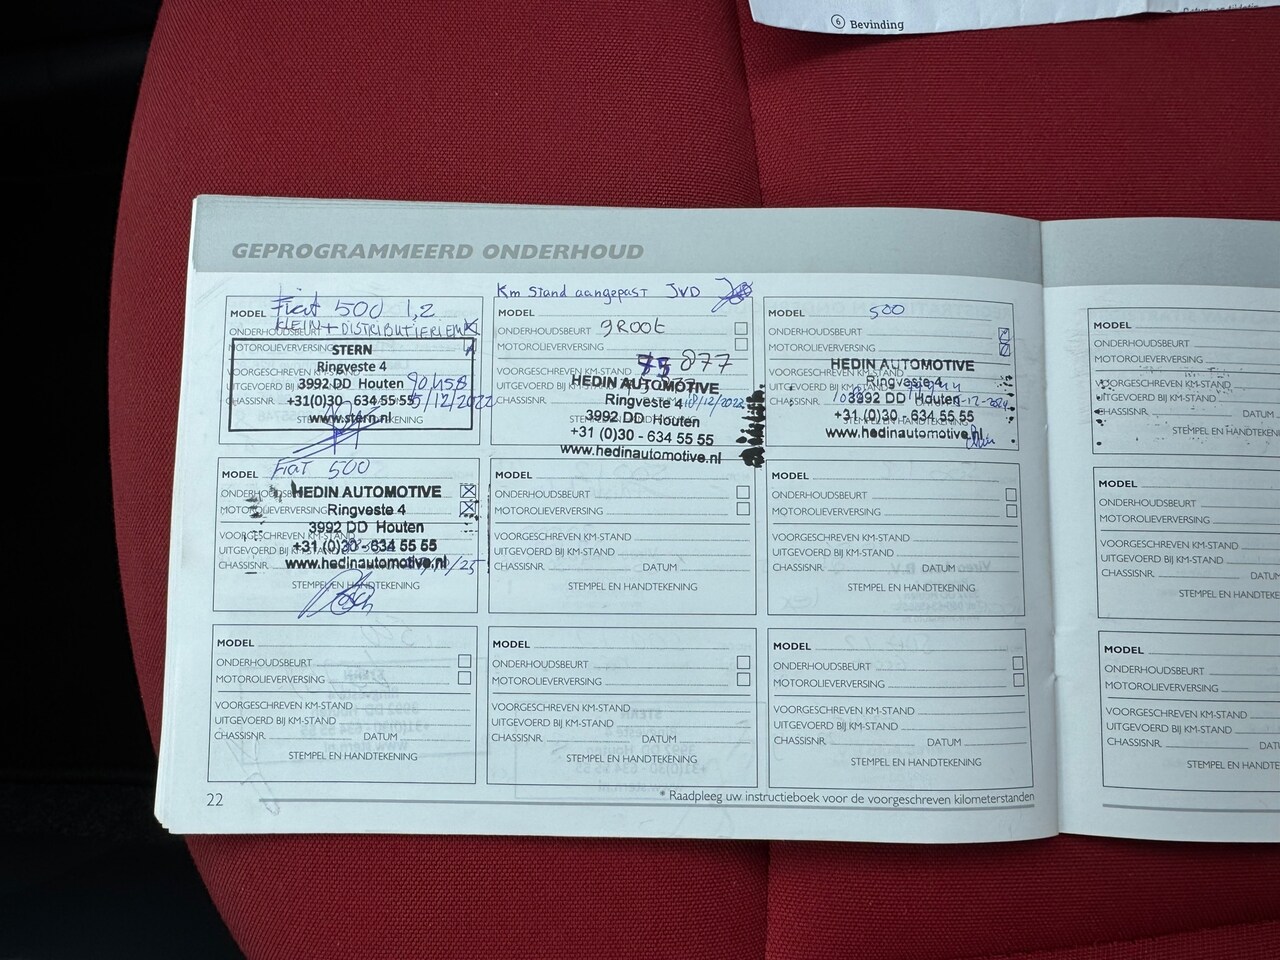 6 Bevinding
GEPROGRAMMEERD ONDERHOUD
MODEL Fiat 500 1,2
ONDERHOUDSBEURT KLEIN + DISTRIBUTIERIEM
MOTOROLIEVERVERSING
STERN
Ringveste 4
3992 DD Houten
+31(0)30 - 634 55 55
www.stern.nl
VOORGESCHREVEN KM-STAND
UITGEVOERD BIJ
CHASSISNR. 5/12/2022
Km Stand aangepast JVD
MODEL
ONDERHOUDSBEURT groot
MOTOROLIEVERVERSING
VOORGESCHREVEN KM-STAND 877
UITGEVOERD BIJ
CHASSISNR.
HEDIN AUTOMOTIVE
Ringveste 4
3992 DD Houten
+31 (0)30 - 634 55 55
www.hedinautomotive.nl
MODEL 500
ONDERHOUDSBEURT
MOTOROLIEVERVERSING
VOORGESCHREVEN KM-STAND
UITGEVOERD BIJ
CHASSISNR.
HEDIN AUTOMOTIVE
Ringveste 4
3992 DD Houten
+31 (0)30 - 634 55 55
www.hedinautomotive.nl
MODEL
ONDERHOUDSBEURT
MOTOROLIEVERVERSING
VOORGESCHREVEN KM-STAND
UITGEVOERD BIJ KM-STAND
CHASSISNR. DATUM
STEMPEL EN HANDTEKE
MODEL Fiat 500
ONDERHOUDSB
MOTOROLIEVERVERSING
VOORGESCHREVEN KM-STAND
UITGEVOERD BIJ KM-STAND
CHASSISNR.
HEDIN AUTOMOTIVE
Ringveste 4
3992 DD Houten
+31 (0)30 - 634 55 55
www.hedinautomotive.nl
STEMPEL EN HANDTEKENING
MODEL
ONDERHOUDSBEURT
MOTOROLIEVERVERSING
VOORGESCHREVEN KM-STAND
UITGEVOERD BIJ KM-STAND
CHASSISNR. DATUM
STEMPEL EN HANDTEKENING
MODEL
ONDERHOUDSBEURT
MOTOROLIEVERVERSING
VOORGESCHREVEN KM-STAND
UITGEVOERD BIJ KM-STAND
CHASSISNR. DATUM
STEMPEL EN HANDTEKENING
MODEL
ONDERHOUDSBEURT
MOTOROLIEVERVERSING
VOORGESCHREVEN KM-STAND
UITGEVOERD BIJ KM-STAND
CHASSISNR. DATUM
STEMPEL EN HANDTEKE
MODEL
ONDERHOUDSBEURT
MOTOROLIEVERVERSING
VOORGESCHREVEN KM-STAND
UITGEVOERD BIJ KM-STAND
CHASSISNR. DATUM
STEMPEL EN HANDTEKENING
MODEL
ONDERHOUDSBEURT
MOTOROLIEVERVERSING
VOORGESCHREVEN KM-STAND
UITGEVOERD BIJ KM-STAND
CHASSISNR. DATUM
STEMPEL EN HANDTEKENING
MODEL
ONDERHOUDSBEURT
MOTOROLIEVERVERSING
VOORGESCHREVEN KM-STAND
UITGEVOERD BIJ KM-STAND
CHASSISNR. DATUM
STEMPEL EN HANDTEKENING
MODEL
ONDERHOUDSBEURT
MOTOROLIEVERVERSING
VOORGESCHREVEN KM-STAND
UITGEVOERD BIJ KM-STAND
CHASSISNR. DAT
STEMPEL EN HANDTEKE
22
* Raadpleeg uw instructieboek voor de voorgeschreven kilometerstanden